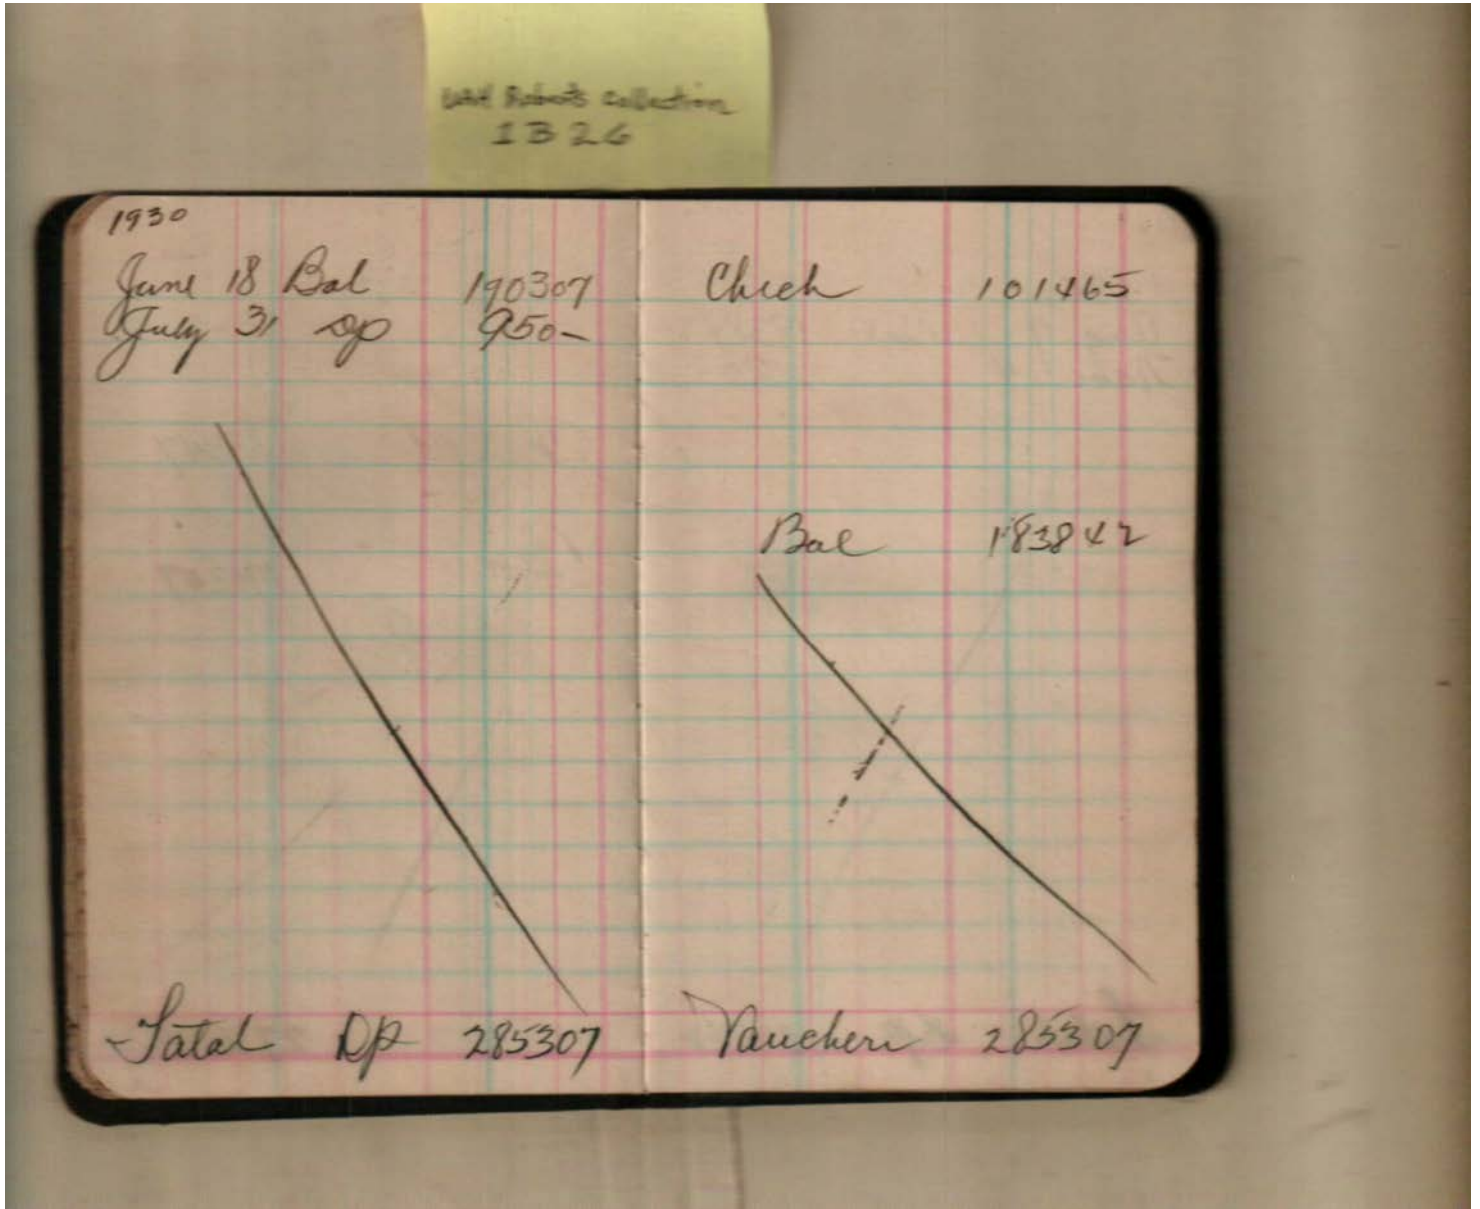 UAH Roberts collection
1 B 26
1930
June 18 Bal 190307
July 31 Dp 950-
Total Dp 285307
Check 101465
Bal 183842
Vouchers 285307